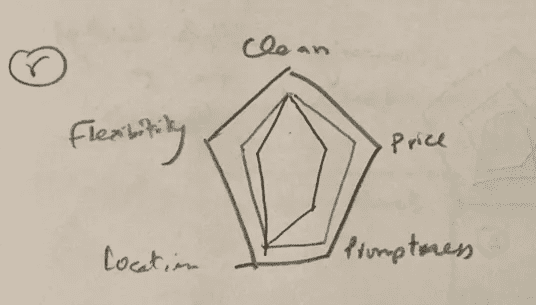 r
Clean
Flexibility
Price
Location
Promptness